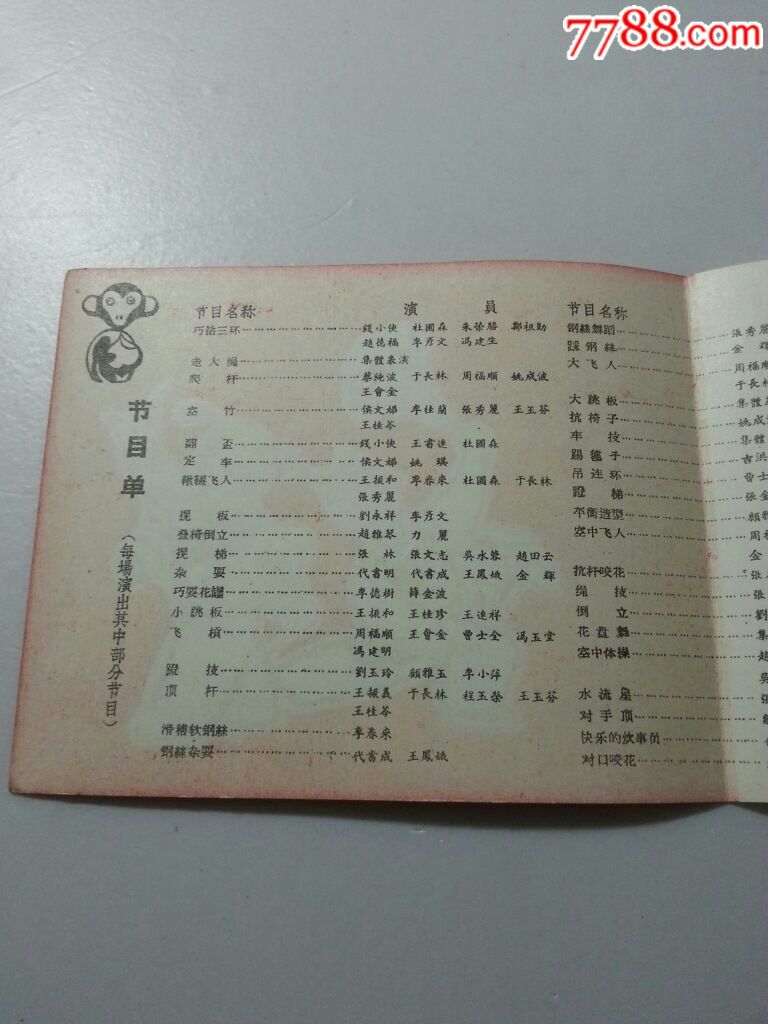 7788.com
节目单
（每場演出其中部分节目）
节目名称 演員
巧鉆三环 錢小俠 杜國森 朱榮勝 鄭祖勤
趙德福 李彦文 馮建生
走大绳 集體表演
爬杆 蔡純波 于長林 周福順 姚成波
王會金
空竹 侯文娣 李桂蘭 張秀麗 王玉芬
王桂苓
翻盃 錢小俠 王書進 杜國森
定车 侯文娣 姚琪
鞦韆飞人 王振和 李春來 杜國森 于長林
張秀麗
捉板 劉永祥 李彦文
叠椅倒立 趙雅琴 力麗
捉梯 張林 張文志 吳水泰 趙田云
杂耍 代書明 代書成 王鳳娥 金輝
巧耍花罎 李德樹 薛金波
小跳板 王振和 王桂珍 王連祥
飞槓 周福順 王會金 曹士全 馮玉堂
馮建明
蹬技 劉玉玲 顧雅玉 李小萍
顶杆 王振義 于長林 程玉荣 王玉芬
王桂苓
滑稽软鋼絲 李春來
鋼絲杂耍 代書成 王鳳娥
节目名称
鋼絲舞蹈 張秀麗
踩鋼絲 金輝
大飞人 周福順
于長
大跳板 集體
抗椅子 姚成
车技 集體
踢毽子 吉洪
吊连环 曹士
蹬梯 張金
平衡造型 顧雅
空中飞人 周福
金
抗杆咬花 張
绳技 張
倒立 劉
花盘舞 集
空中体操 趙
吳
水流星 張
对手顶
快乐的炊事员
对口咬花